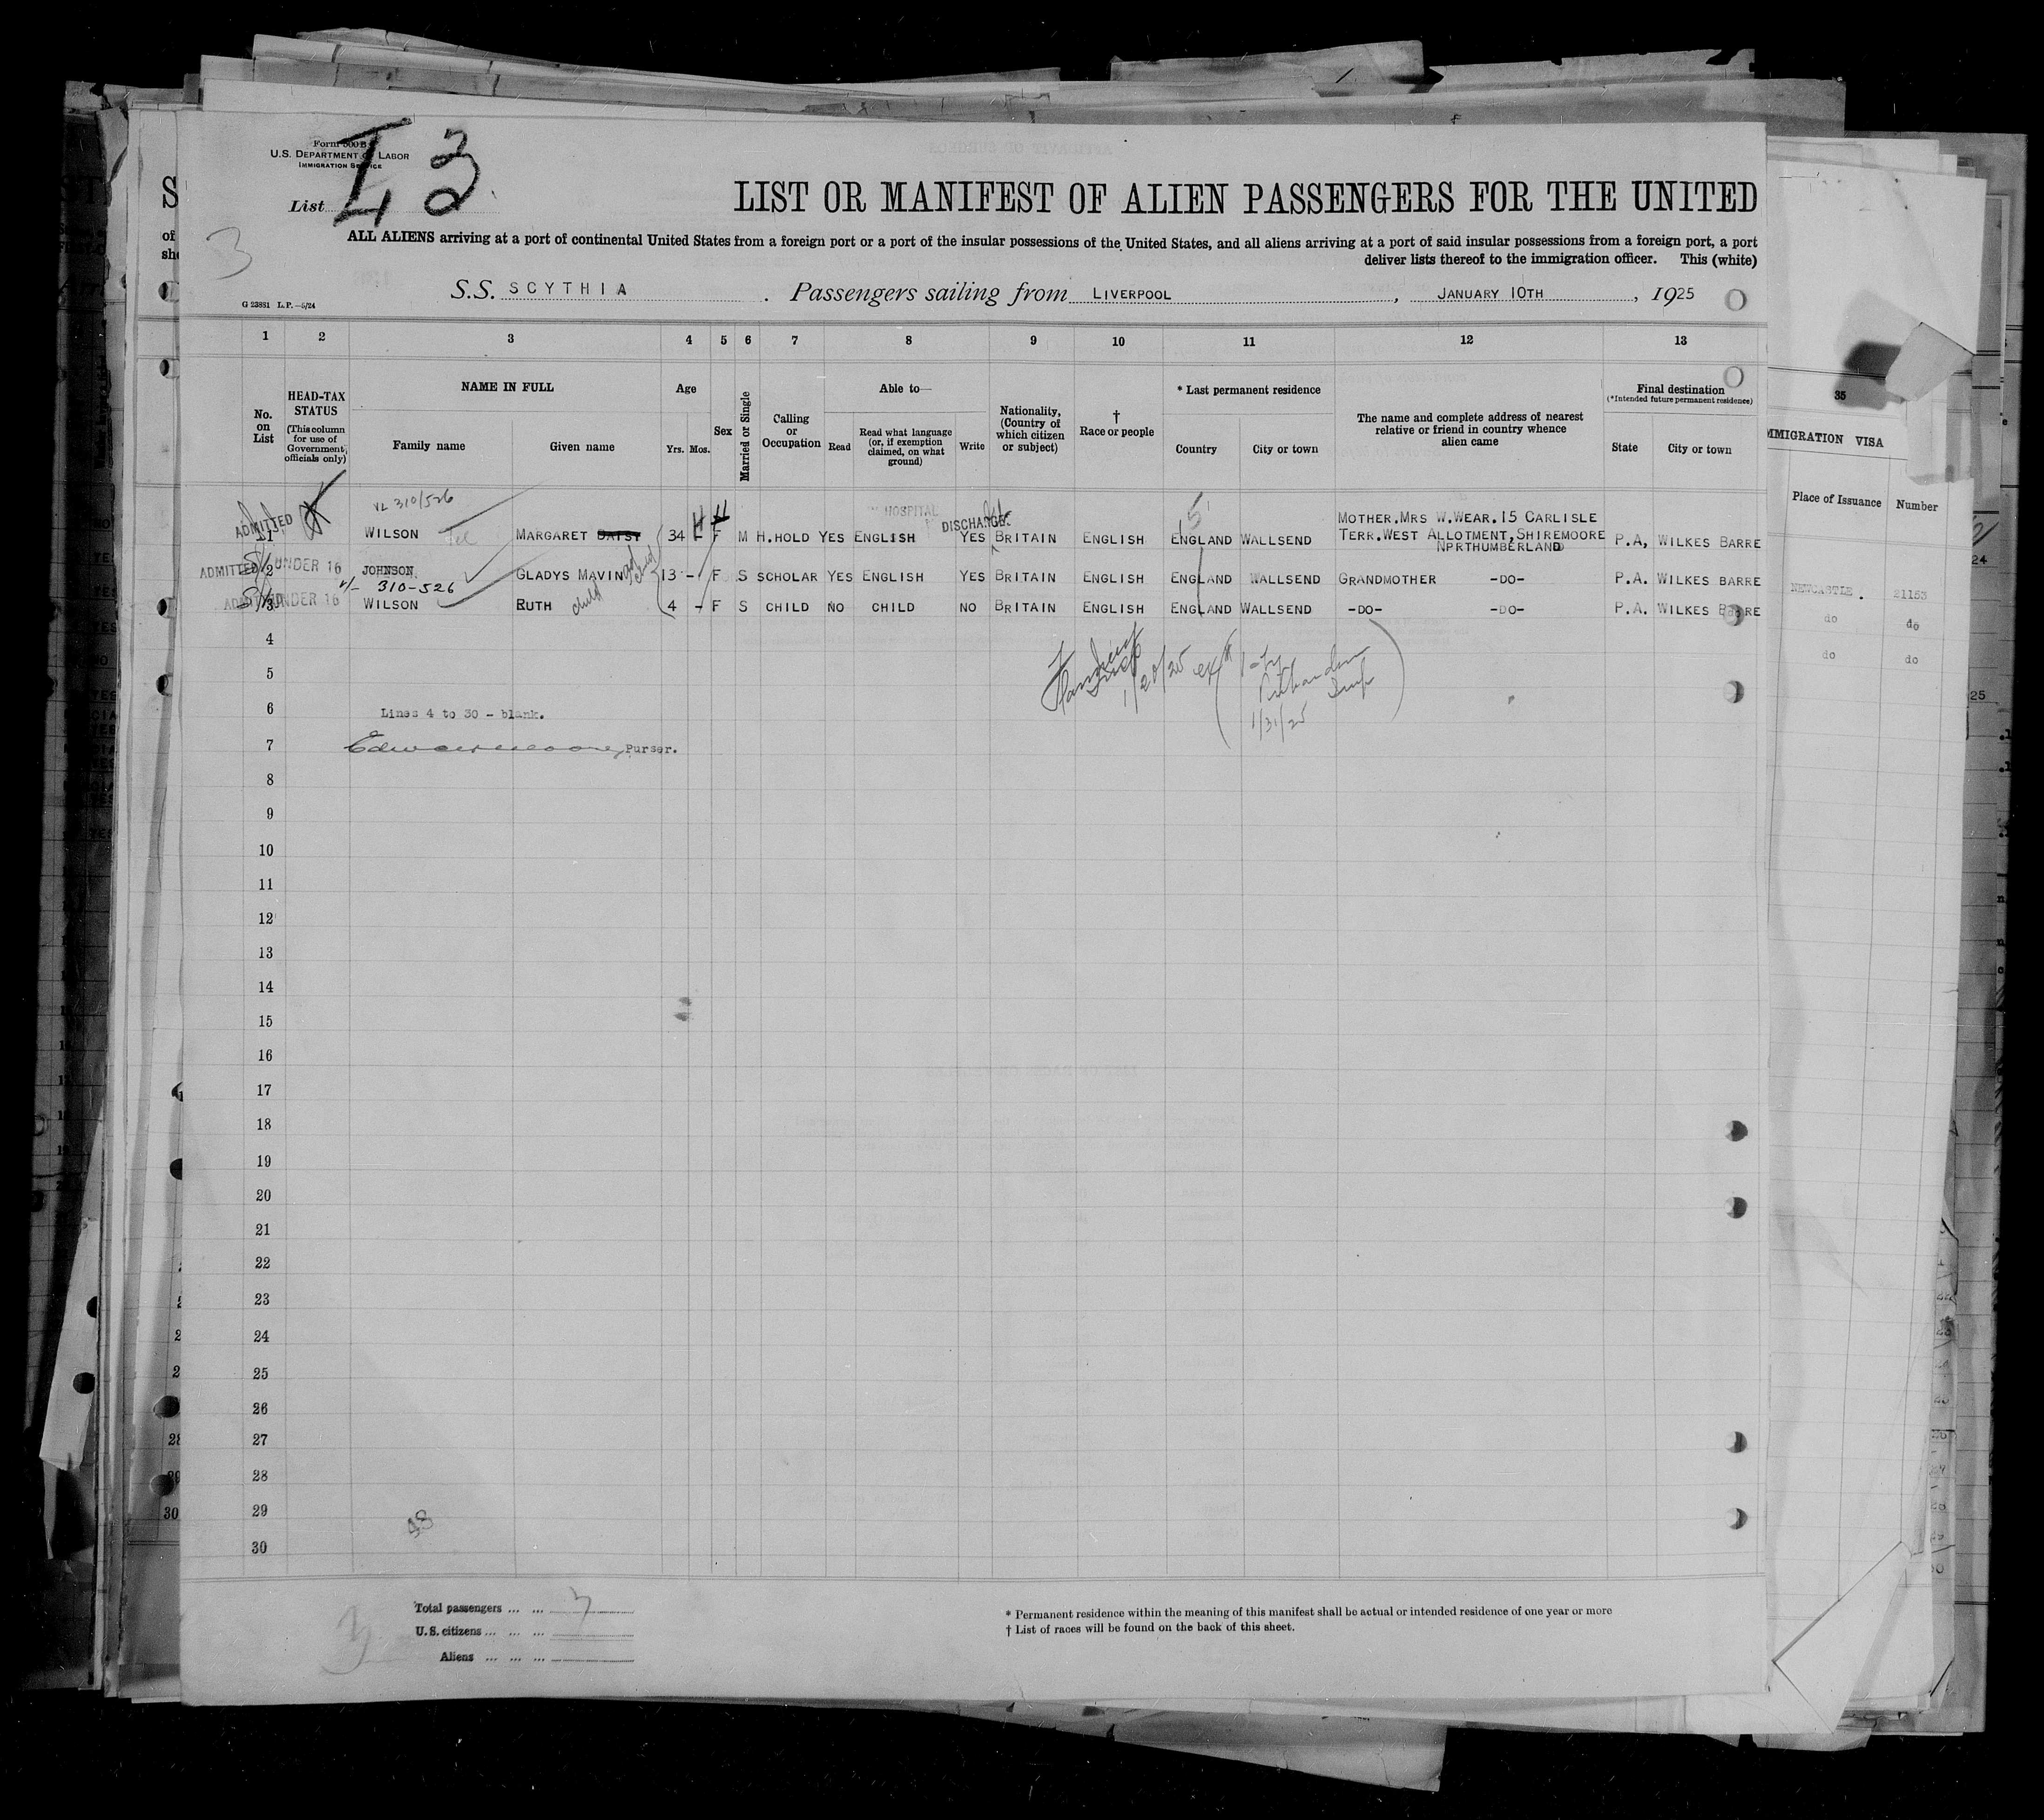 Form 500 B
U.S. DEPARTMENT OF LABOR
IMMIGRATION SERVICE
List 3
3
LIST OR MANIFEST OF ALIEN PASSENGERS FOR THE UNITED
ALL ALIENS arriving at a port of continental United States from a foreign port or a port of the insular possessions of the United States, and all aliens arriving at a port of said insular possessions from a foreign port, a port
deliver lists thereof to the immigration officer. This (white)
G 23881 L.P.—5/24
S.S. SCYTHIA. Passengers sailing from LIVERPOOL, JANUARY 10TH, 1925
1 2 3 4 5 6 7 8 9 10 11 12 13
No. on List
HEAD-TAX STATUS (This column for use of Government officials only)
NAME IN FULL
Family name Given name
Age
Yrs. Mos.
Sex
Married or Single
Calling or Occupation
Able to—
Read
Read what language (or, if exemption claimed, on what ground)
Write
Nationality, (Country of which citizen or subject)
† Race or people
* Last permanent residence
Country City or town
The name and complete address of nearest relative or friend in country whence alien came
Final destination
(*Intended future permanent residence)
State City or town
35
IMMIGRATION VISA
Place of Issuance Number
VL 310/526
HOSPITAL
DISCHARGE.
5
ADMITTED
1 WILSON MARGARET DAISY 34 F M H.HOLD YES ENGLISH YES BRITAIN ENGLISH ENGLAND WALLSEND MOTHER.MRS W.WEAR.15 CARLISLE TERR.WEST ALLOTMENT, SHIREMOORE NPRTHUMBERLAND P.A, WILKES BARRE
ADMITTED UNDER 16
2 JOHNSON GLADYS MAVIN 13 - F S SCHOLAR YES ENGLISH YES BRITAIN ENGLISH ENGLAND WALLSEND GRANDMOTHER -DO- P.A. WILKES BARRE
310-526
ADMITTED UNDER 16
3 WILSON RUTH child 4 - F S CHILD NO CHILD NO BRITAIN ENGLISH ENGLAND WALLSEND -DO- -DO- P.A. WILKES BARRE
NEWCASTLE. 21153
do do
do do
4
5
1/20/25
1/31/25
6 Lines 4 to 30 - blank.
7 Purser.
8
9
10
11
12
13
14
15
16
17
18
19
20
21
22
23
24
25
26
27
28
29
30
Total passengers ... ... 3
U.S. citizens ... ... ...
Aliens ... ... ...
* Permanent residence within the meaning of this manifest shall be actual or intended residence of one year or more
† List of races will be found on the back of this sheet.